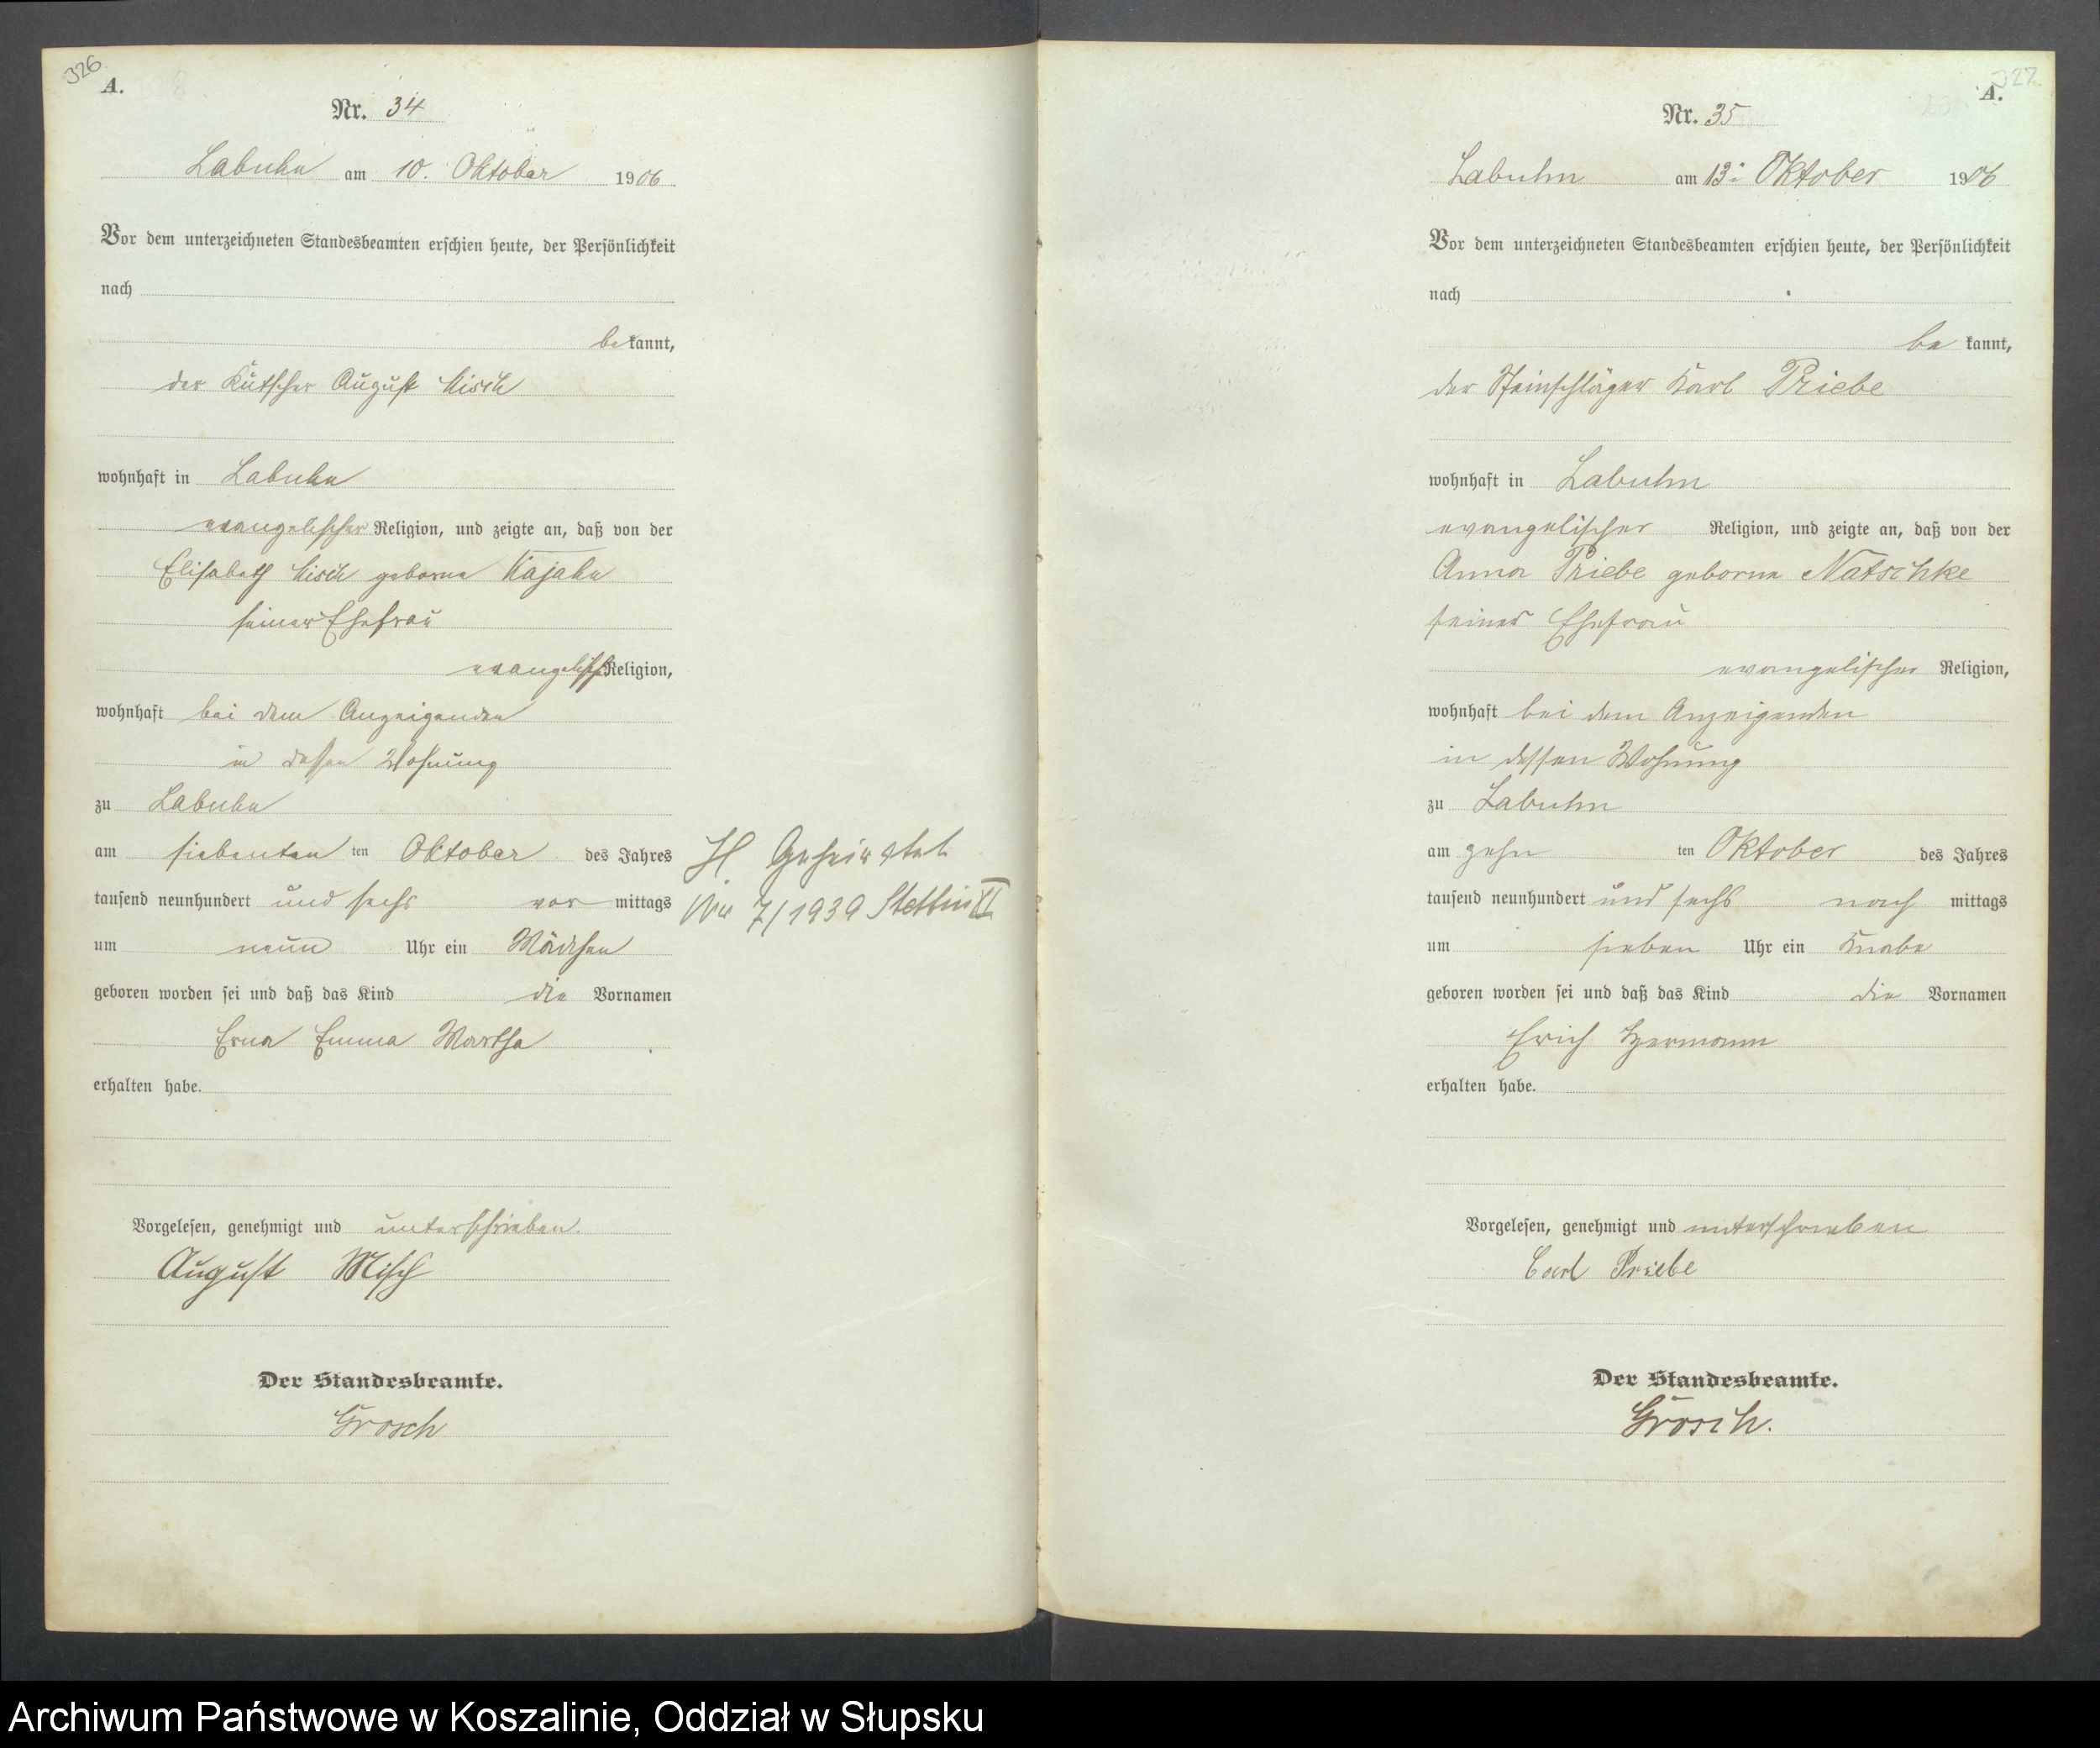 326
A.
Nr. 34
Labuhn am 10. Oktober 1906
Vor dem unterzeichneten Standesbeamten erschien heute, der Persönlichkeit
nach
bekannt,
der Kutscher August Misch
wohnhaft in Labuhn
evangelischer Religion, und zeigte an, daß von der
Elisabeth Misch geborne
seiner Ehefrau
evangelisch Religion,
wohnhaft bei dem Anzeigenden
in dessen Wohnung
zu Labuhn
am siebenten ten Oktober des Jahres
tausend neunhundert und sechs vor mittags
um neun Uhr ein Mädchen
geboren worden sei und daß das Kind die Vornamen
Erna Emma Martha
erhalten habe.
Vorgelesen, genehmigt und unterschrieben.
August Misch
Der Standesbeamte.
Grosch
H Geheiratet
Nr 7/1939 Stettin II
327
A.
Nr. 35
Labuhn am 13. Oktober 1906
Vor dem unterzeichneten Standesbeamten erschien heute, der Persönlichkeit
nach
be kannt,
der Steinschläger Karl Priebe
wohnhaft in Labuhn
evangelischer Religion, und zeigte an, daß von der
Anna Priebe geborne Natschke
seiner Ehefrau
evangelischer Religion,
wohnhaft bei dem Anzeigenden
in dessen Wohnung
zu Labuhn
am zehn ten Oktober des Jahres
tausend neunhundert und sechs nach mittags
um sieben Uhr ein Knabe
geboren worden sei und daß das Kind die Vornamen
Erich Hermann
erhalten habe.
Vorgelesen, genehmigt und unterschrieben
Carl Priebe
Der Standesbeamte.
Grosch.
Archiwum Państwowe w Koszalinie, Oddział w Słupsku